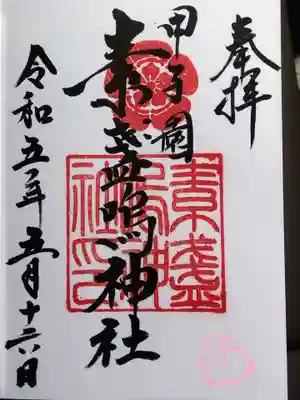 奉拝
甲子園
素盞嗚神社
令和五年五月十六日
素盞
嗚神
社印